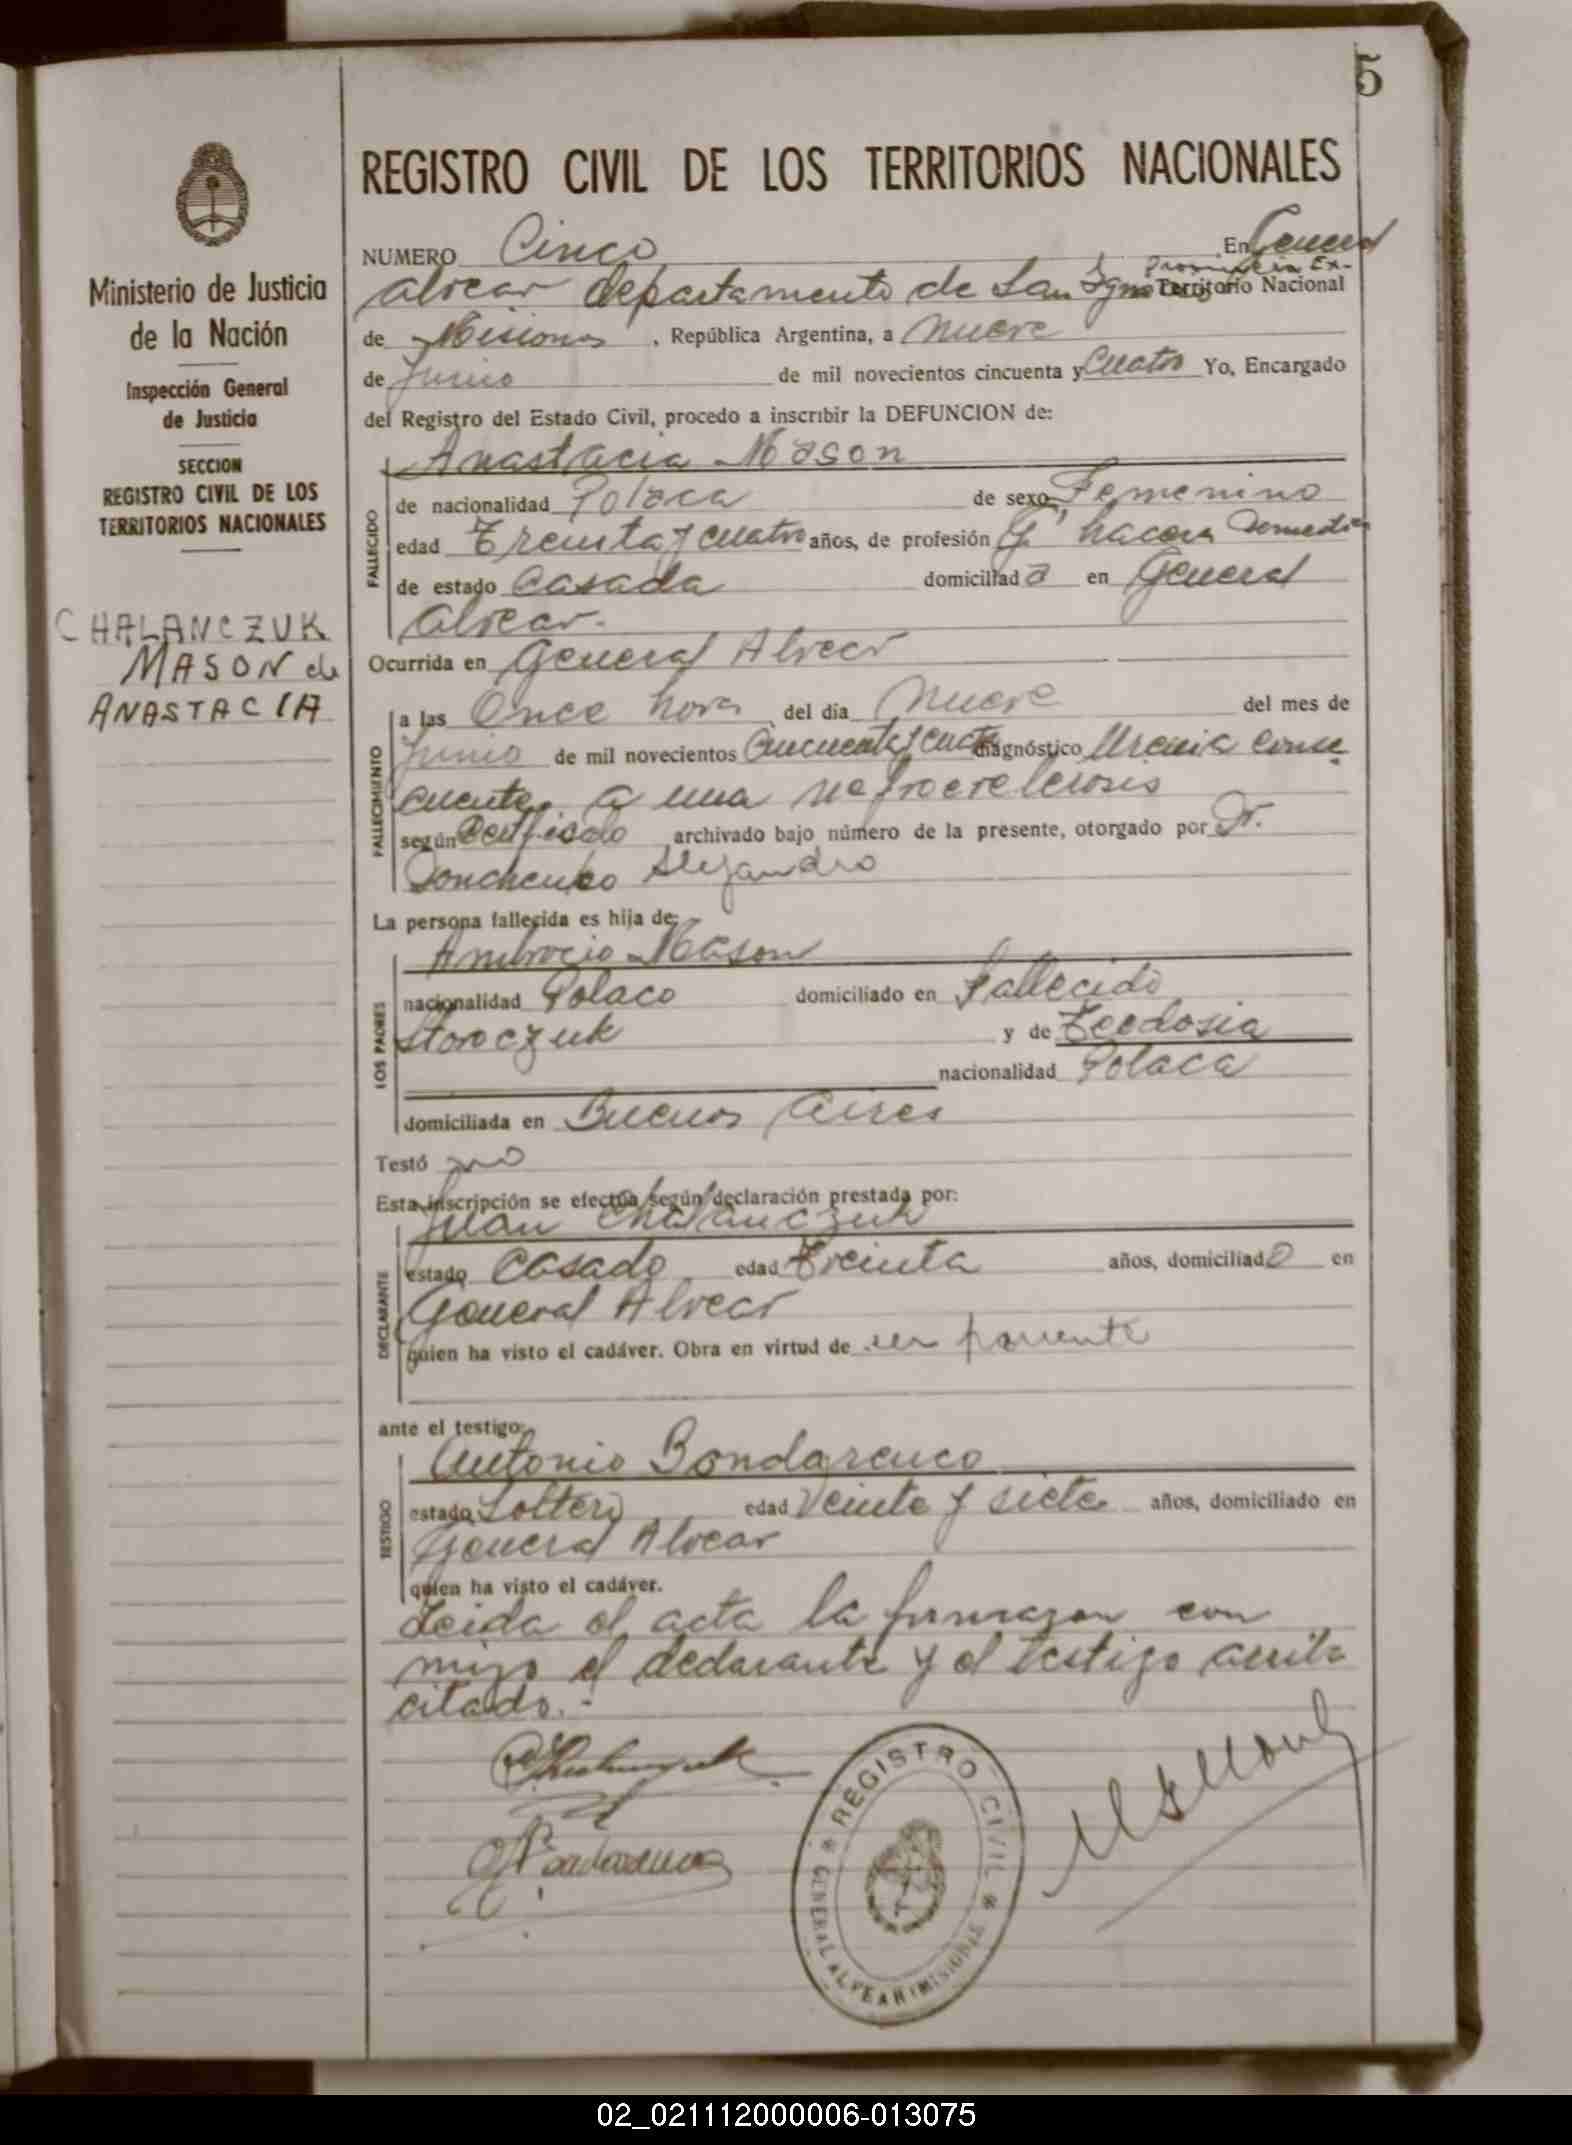 5
Ministerio de Justicia
de la Nación
Inspección General
de Justicia
SECCION
REGISTRO CIVIL DE LOS
TERRITORIOS NACIONALES
CHALANCZUK
MASON de
ANASTACIA
REGISTRO CIVIL DE LOS TERRITORIOS NACIONALES
NUMERO Cinco En General
Provincia Ex-
alvear departamento de San Igno Territorio Nacional
de Misiones, República Argentina, a nueve
de Junio de mil novecientos cincuenta y Cuatro Yo, Encargado
del Registro del Estado Civil, procedo a inscribir la DEFUNCION de:
Anastacia Mason
FALLECIDO
de nacionalidad Polaca de sexo Femenino
edad Treinta y cuatro años, de profesión Q' haceres Domestico
de estado Casada domiciliada en General
alvear.
Ocurrida en General Alvear
FALLECIMIENTO
a las Once horas del día nueve del mes de
Junio de mil novecientos Cincuenta y cuatro diagnóstico Uremia conse
cuente a una nefroerelerosis
según Certificado archivado bajo número de la presente, otorgado por Dr.
Alejandro
La persona fallecida es hija de:
LOS PADRES
Ambrocio Mason
nacionalidad Polaco domiciliado en Fallecido
Storoczuk y de Teodosia
nacionalidad Polaca
domiciliada en Buenos Aires
Testó no
Esta inscripción se efectúa según declaración prestada por:
DECLARANTE
Juan Chalanczuk
estado Casado edad Treinta años, domiciliado en
General Alvear
quien ha visto el cadáver. Obra en virtud de ser pariente
ante el testigo:
TESTIGO
Antonio Bondarenco
estado Soltero edad Veinte y siete años, domiciliado en
General Alvear
quien ha visto el cadáver.
Leida el acta la firmaron con
migo el declarante y el testigo arriba
citado.-
REGISTRO CIVIL
GENERAL ALVEAR (MISIONES
02_021112000006-013075